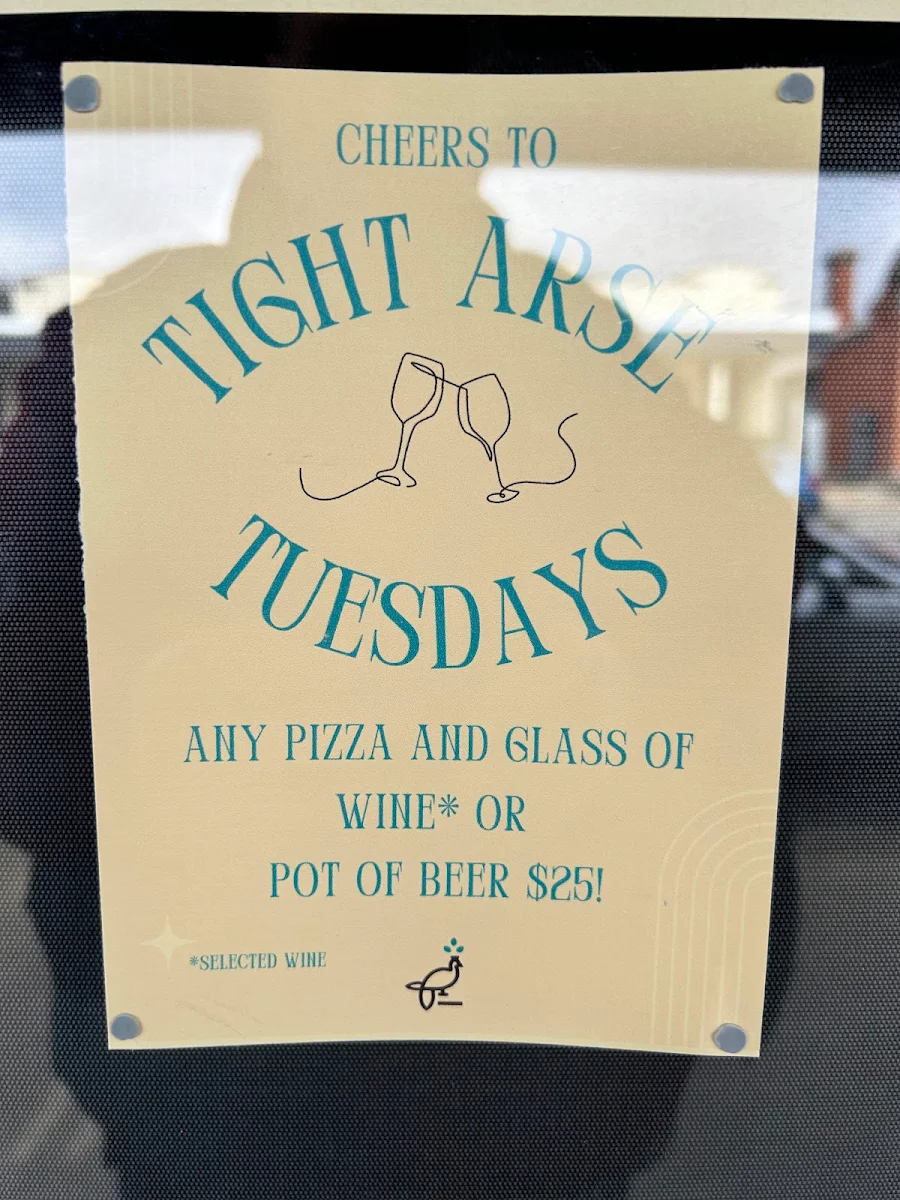 CHEERS TO
TIGHT ARSE
TUESDAYS
ANY PIZZA AND GLASS OF
WINE* OR
POT OF BEER $25!
*SELECTED WINE